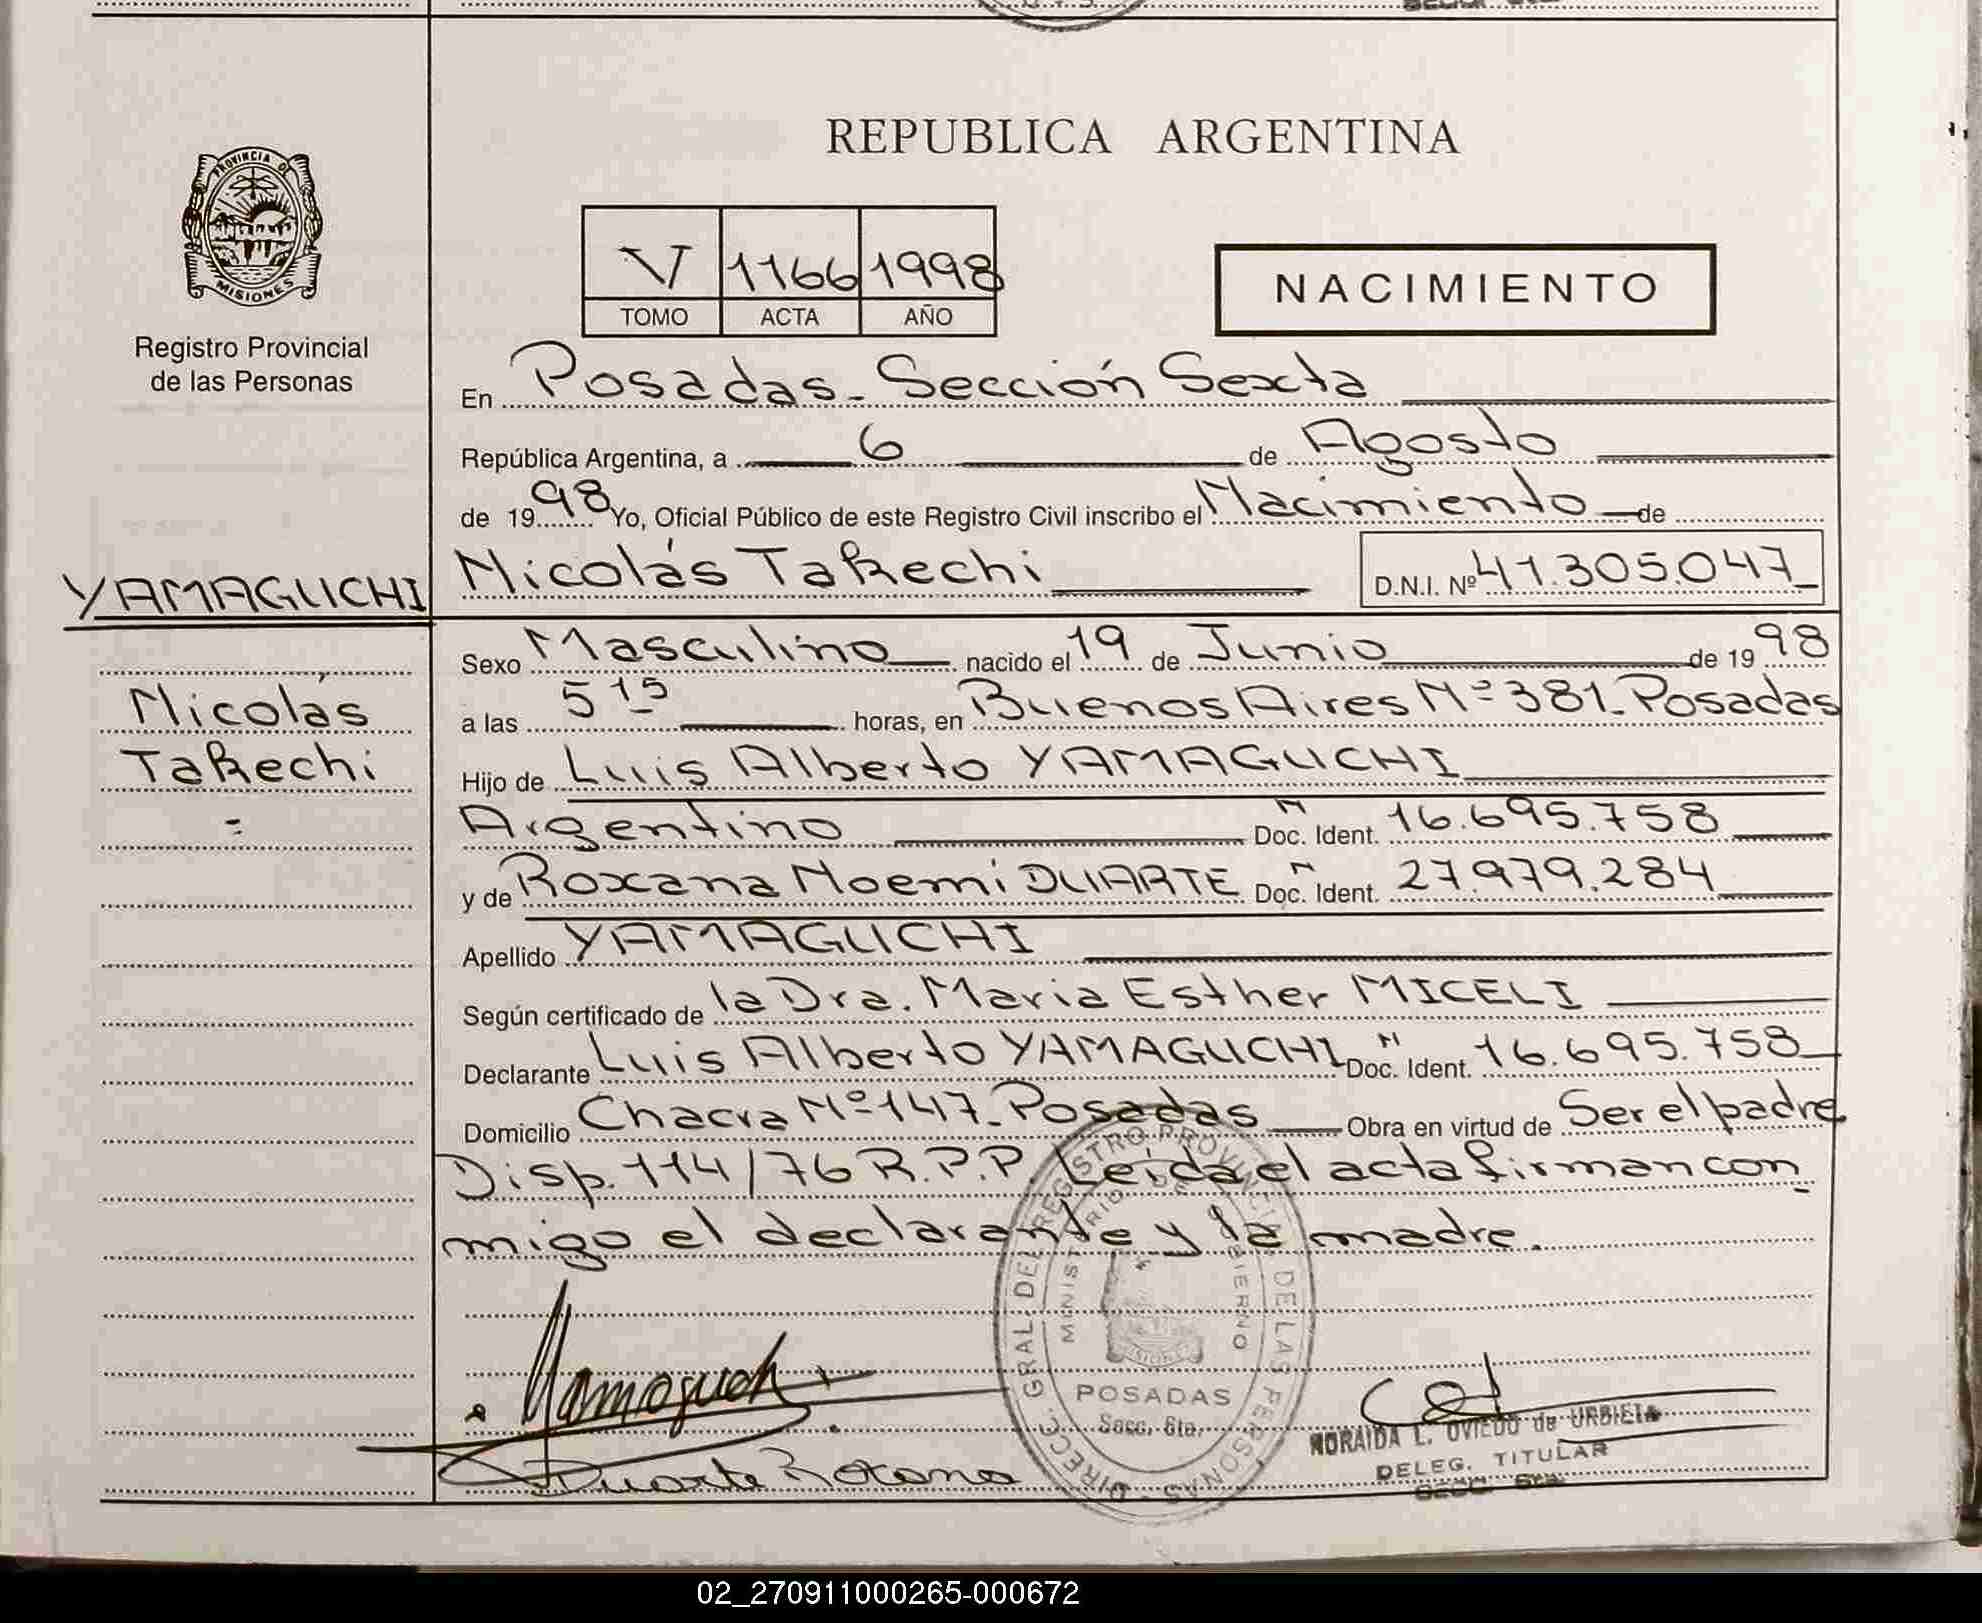 REPUBLICA ARGENTINA
PROVINCIA DE
MISIONES
Registro Provincial
de las Personas
V 1166 1998
TOMO ACTA AÑO
NACIMIENTO
En Posadas - Sección Sexta
República Argentina, a 6 de Agosto
de 1998 Yo, Oficial Público de este Registro Civil inscribo el Nacimiento de
Nicolás Takechi D.N.I. Nº 41.305.047
YAMAGUCHI
Nicolás
Takechi
Sexo Masculino nacido el 19 de Junio de 1998
a las 5 15 horas, en Buenos Aires Nº 381 - Posadas
Hijo de Luis Alberto YAMAGUCHI
Argentino Doc. Ident. 16.695.758
y de Roxana Noemi DUARTE Doc. Ident. 27.979.284
Apellido YAMAGUCHI
Según certificado de la Dra. Maria Esther MICELI
Declarante Luis Alberto YAMAGUCHI Doc. Ident. 16.695.758
Domicilio Chacra Nº 147 - Posadas Obra en virtud de Ser el padre
Disp. 114/76 R.P.P. Leída el acta firman con
migo el declarante y la madre.
DIRECC. GRAL. DEL REGISTRO PROVINCIAL DE LAS PERSONAS
MINISTERIO DE GOBIERNO
POSADAS
Secc. 6ta.
Yamaguch
Duarte Roxana
NORAIDA L. OVIEDO de URBIETA
DELEG. TITULAR
SECC. 6ta.
02_270911000265-000672